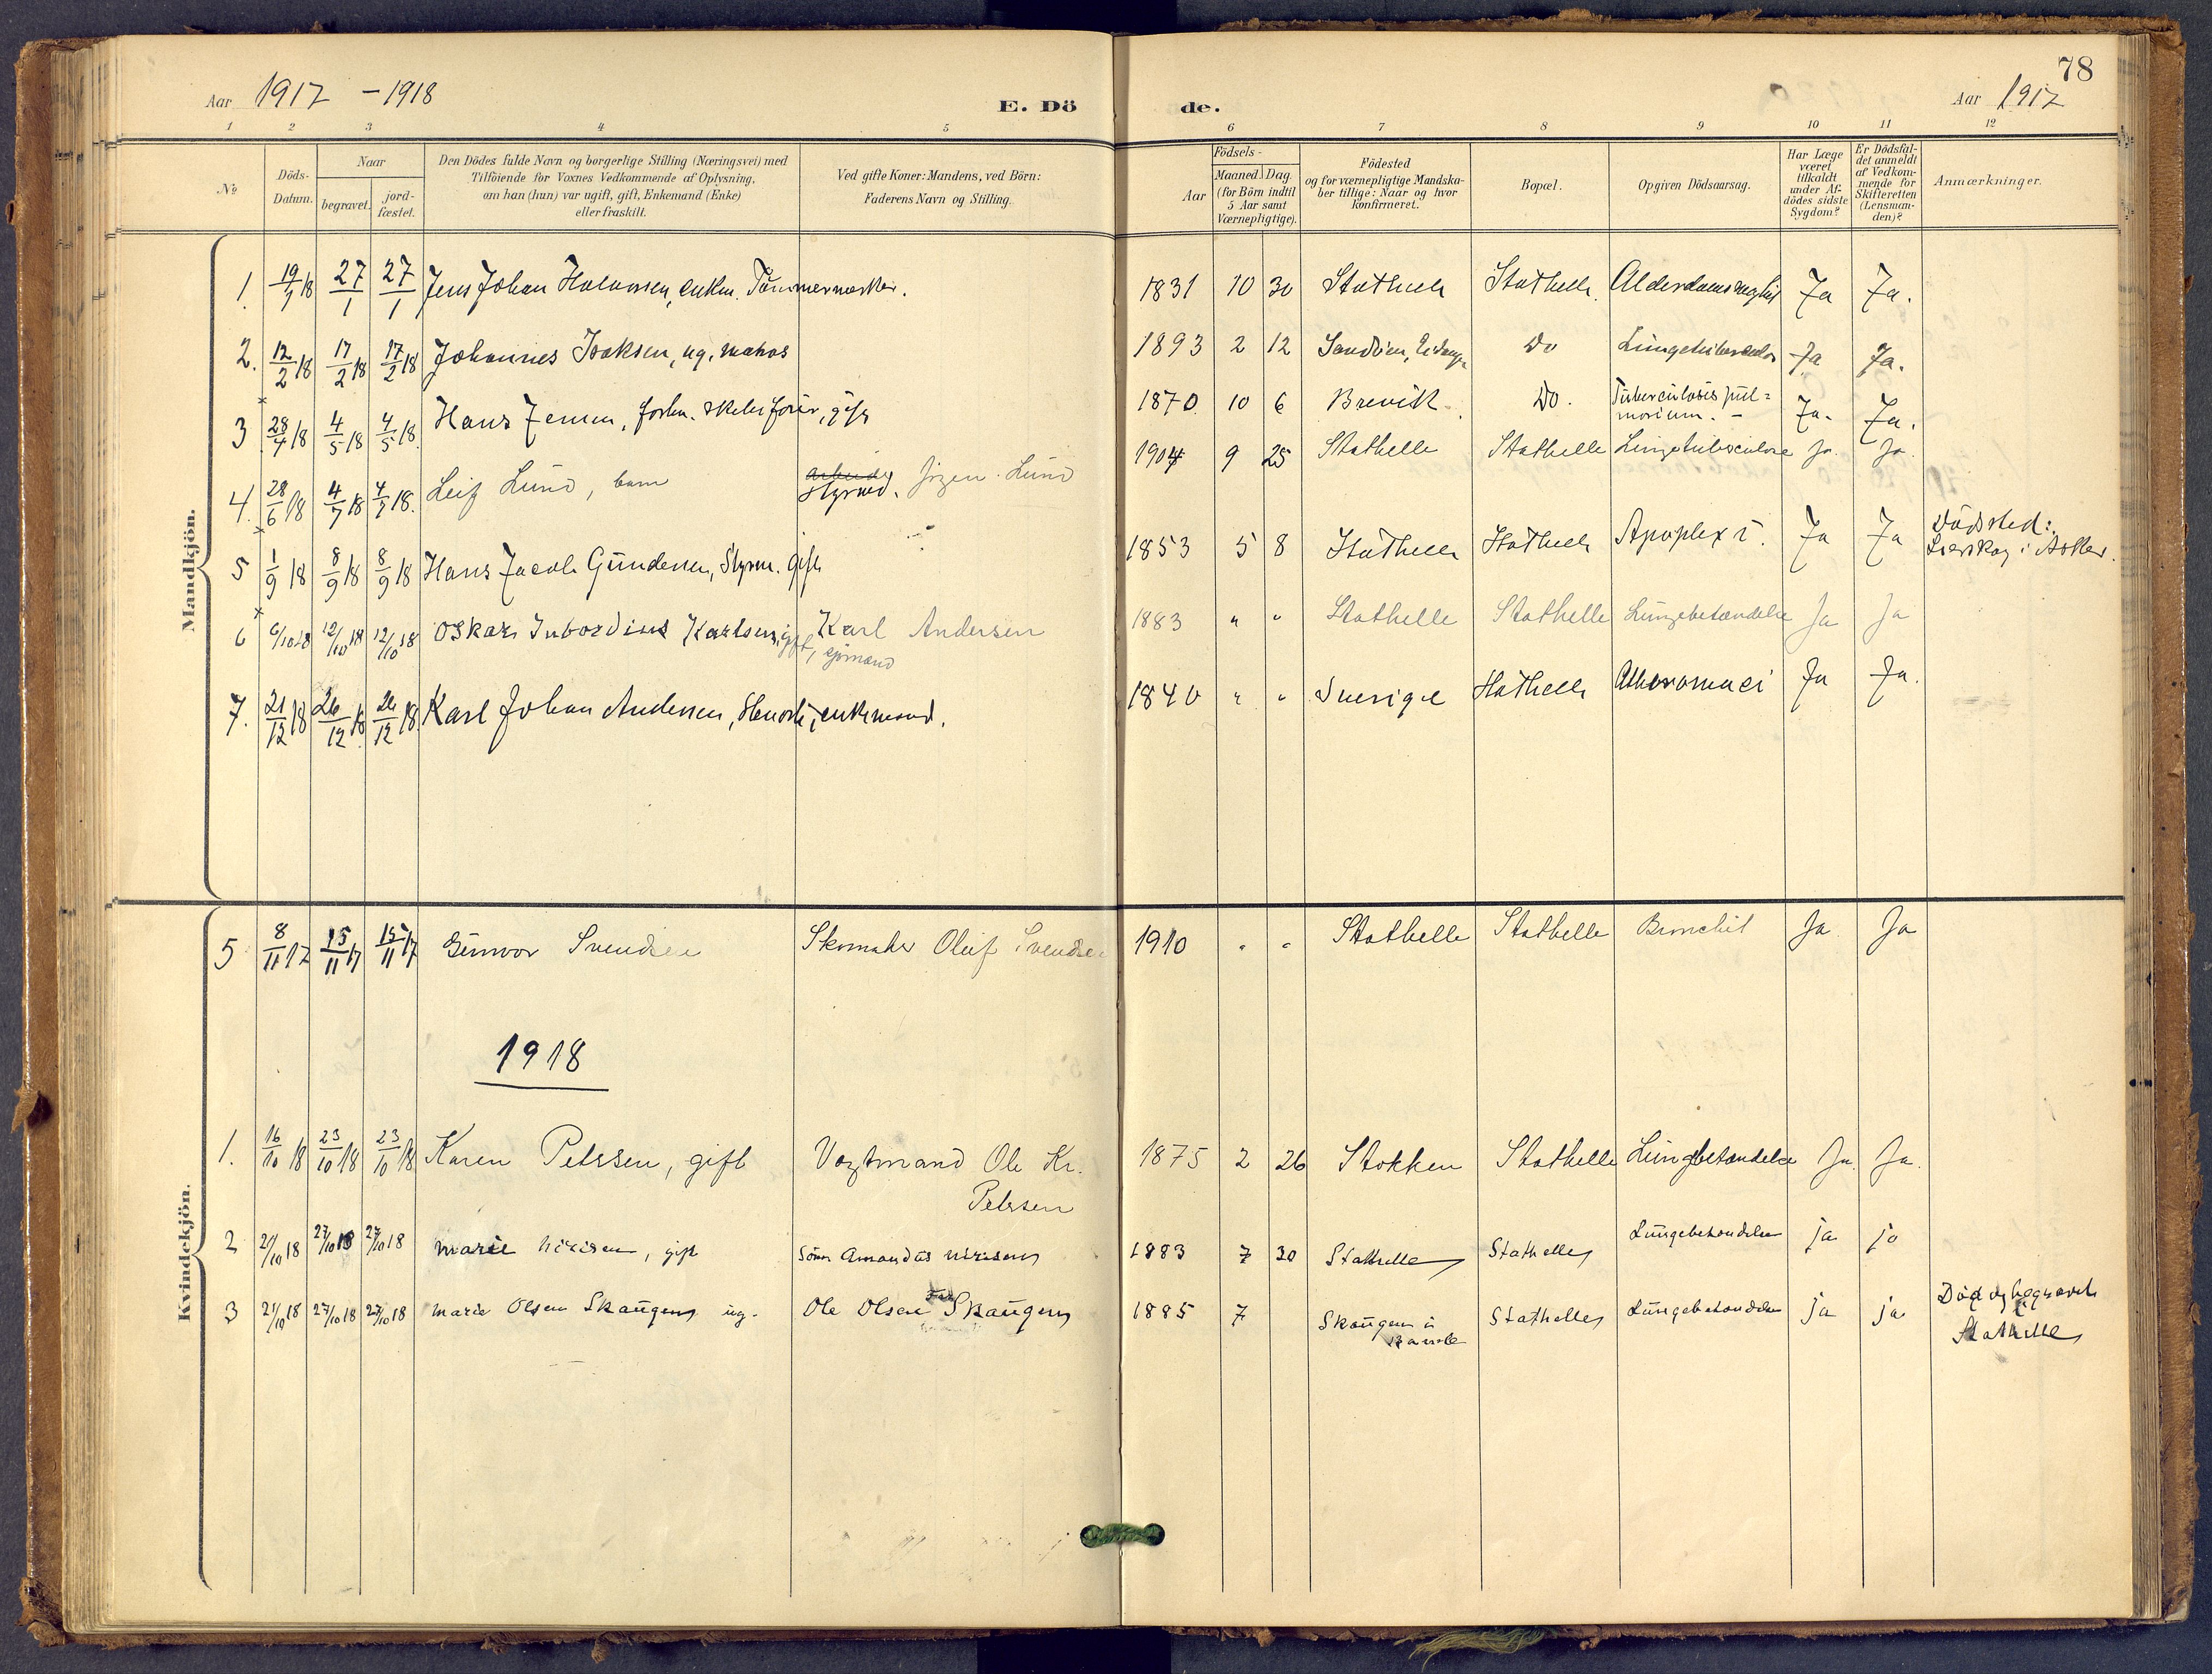 78
Aar 1917 - 1918
E. Dö de.
Aar 1917
1 2 3 4 5 6 7 8 9 10 11 12
No
Döds-
Datum.
Naar
begravet.
jord-
fæstet.
Den Dödes fulde Navn og borgerlige Stilling (Næringsvei) med
Tilföiende for Voxnes Vedkommende af Oplysning,
om han (hun) var ugift, gift, Enkemand (Enke)
eller fraskilt.
Ved gifte Koner: Mandens, ved Börn:
Faderens Navn og Stilling.
Födsels-
Aar
Maaned. Dag.
(for Börn indtil
5 Aar samt
Værnepligtige).
Födested
og for værnepligtige Mandska-
ber tillige: Naar og hvor
konfirmeret.
Bopæl.
Opgiven Dödsaarsag.
Har Læge
været
tilkaldt
under Af-
dödes sidste
Sygdom?
Er Dödsfal-
det anmeldt
af Vedkom-
mende for
Skifteretten
(Lensman-
den)?
Anmærkninger.
Mandkjön.
1. 19/1 18 27/1 27/1 Jens Johan Halvorsen, enkm. Tömmermærker. 1831 10 30 Stathelle Stathelle Ja Ja.
2. 12/2 18 17/2 18 17/2 18 Johannes Isaksen, ug. matros 1893 2 12 Do Lungetuberculos Ja Ja.
3 28/4 18 4/5 18 4/5 18. Hans Jensen, gift 1870 10 6 Brevik Do. Tuberculosis pul=
monium. - Ja. Ja.
4. 28/6 18 4/7 18 4/7 18. Leif Lund, barn Styrmd. Jörgen Lund 1904 9 25 Stathelle Stathelle Lungetuberculose Ja. Ja.
5 1/9 18 8/9 18 8/9 18 Hans Jacob Gundersen, Styrm. gift 1853 5 8 Stathelle Stathelle Apoplexi. Ja Ja Dödssted:
Lierskog i Asker.
6 6/10 18 12/10 18 12/10 18 Oskar Karlsen, gift, sjömand Karl Andersen 1883 " " Stathelle Stathelle Lungebetændelse Ja Ja
7. 21/12 18 26/12 18 26/12 18 Karl Johan Andersen, enkemand. 1840 " " Sverige Stathelle Ja Ja.
Kvindekjön.
5 8/11 17 15/11 17 15/11 17 Gunvor Svendsen Skomaker Oluf Svendsen 1910 " " Stathelle Stathelle Bronchit Ja Ja
1918
1. 16/10 18 23/10 18 23/10 18 Karen Petersen, gift Vagtmand Ole Kr.
Petersen 1875 2 26 Stokken Stathelle Lungebetændelse Ja Ja.
2 21/10 18 27/10 18 27/10 18 Marie Nilsen, gift Söm. Amandus Nilsen 1883 7 30 Stathelle Stathelle Lungebetændelse ja ja
3 21/10 18 27/10 18 27/10 18 Marie Olsen Skaugen ug. Ole Olsen Skaugen 1885 7 Skaugen i
Bamble Stathelle Lungebetændelse ja ja Död og begravet
i
Stathelle